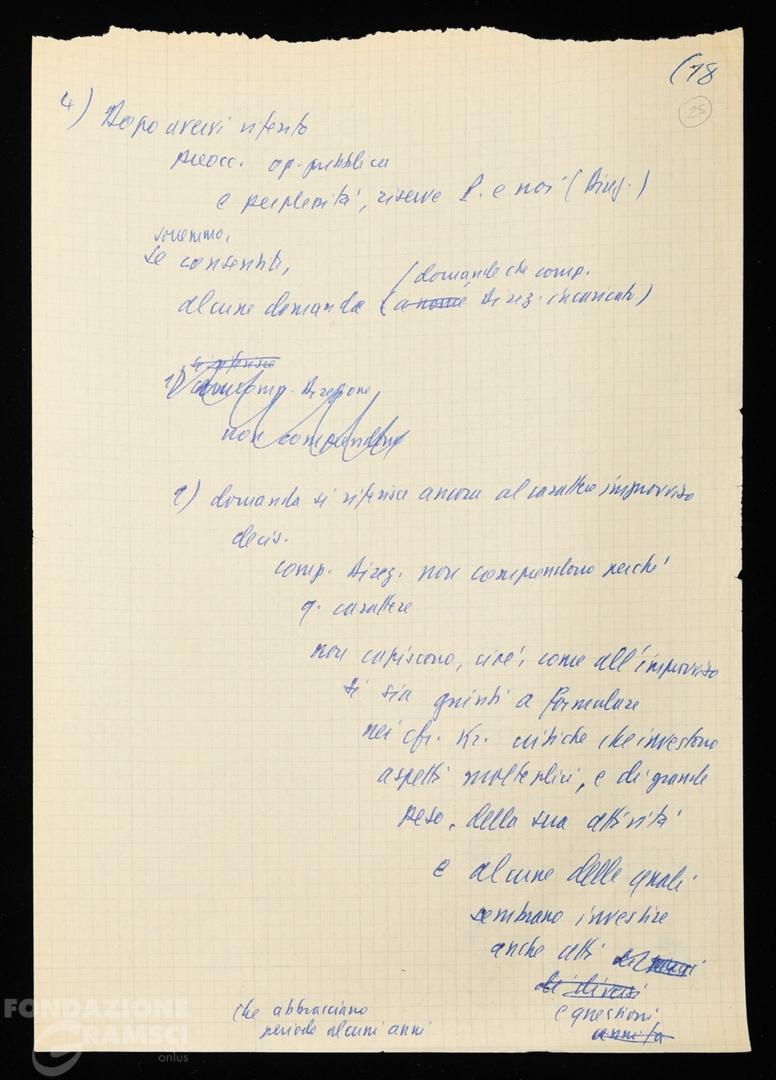 (18
25
4) Dopo avervi riferito
preocc. op. pubblica
e perplessità, riserve P. e noi (Direz.)
vorremmo,
se consentite,
(domande che comp.
alcune domande Direz. incaricato)
si riferisce
1) comp. Direzione
non comprendono
2) domanda si riferisce ancora al carattere improvviso
decis.
comp. Direz. non comprendono perché
q. carattere
non capiscono, cioè, come all'improvviso
si sia giunti a formulare
nei cfr. Kr. critiche che investono
aspetti molteplici, e di grande
peso, della sua attività
e alcune delle quali
sembrano investire
anche atti
di diversi
e questioni
che abbracciano
periodo alcuni anni
FONDAZIONE
GRAMSCI
onlus